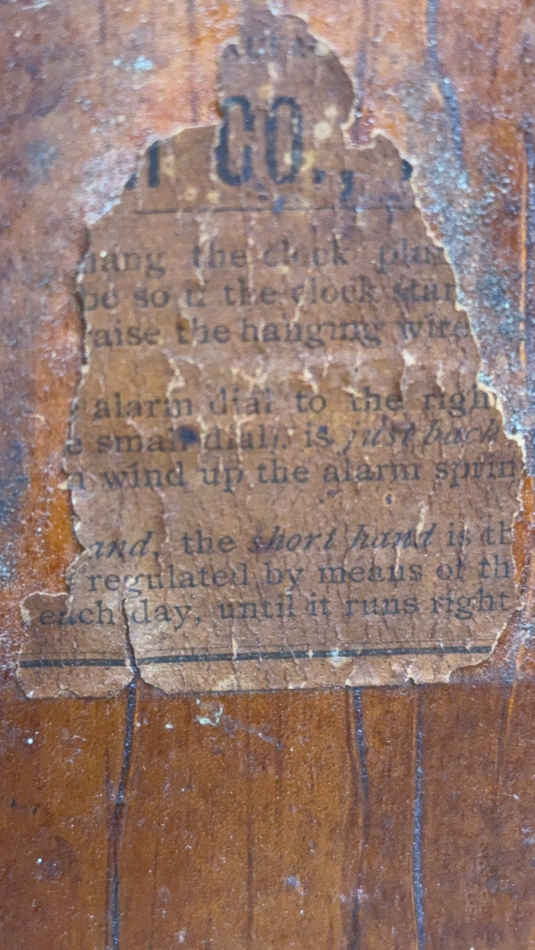 CO.,
hang the clock plu
be so if the clock star
raise the hanging wire
alarm dial to the righ
e small dial, is just back
n wind up the alarm sprin
and, the short hand is th
regulated by means of th
each day, until it runs right